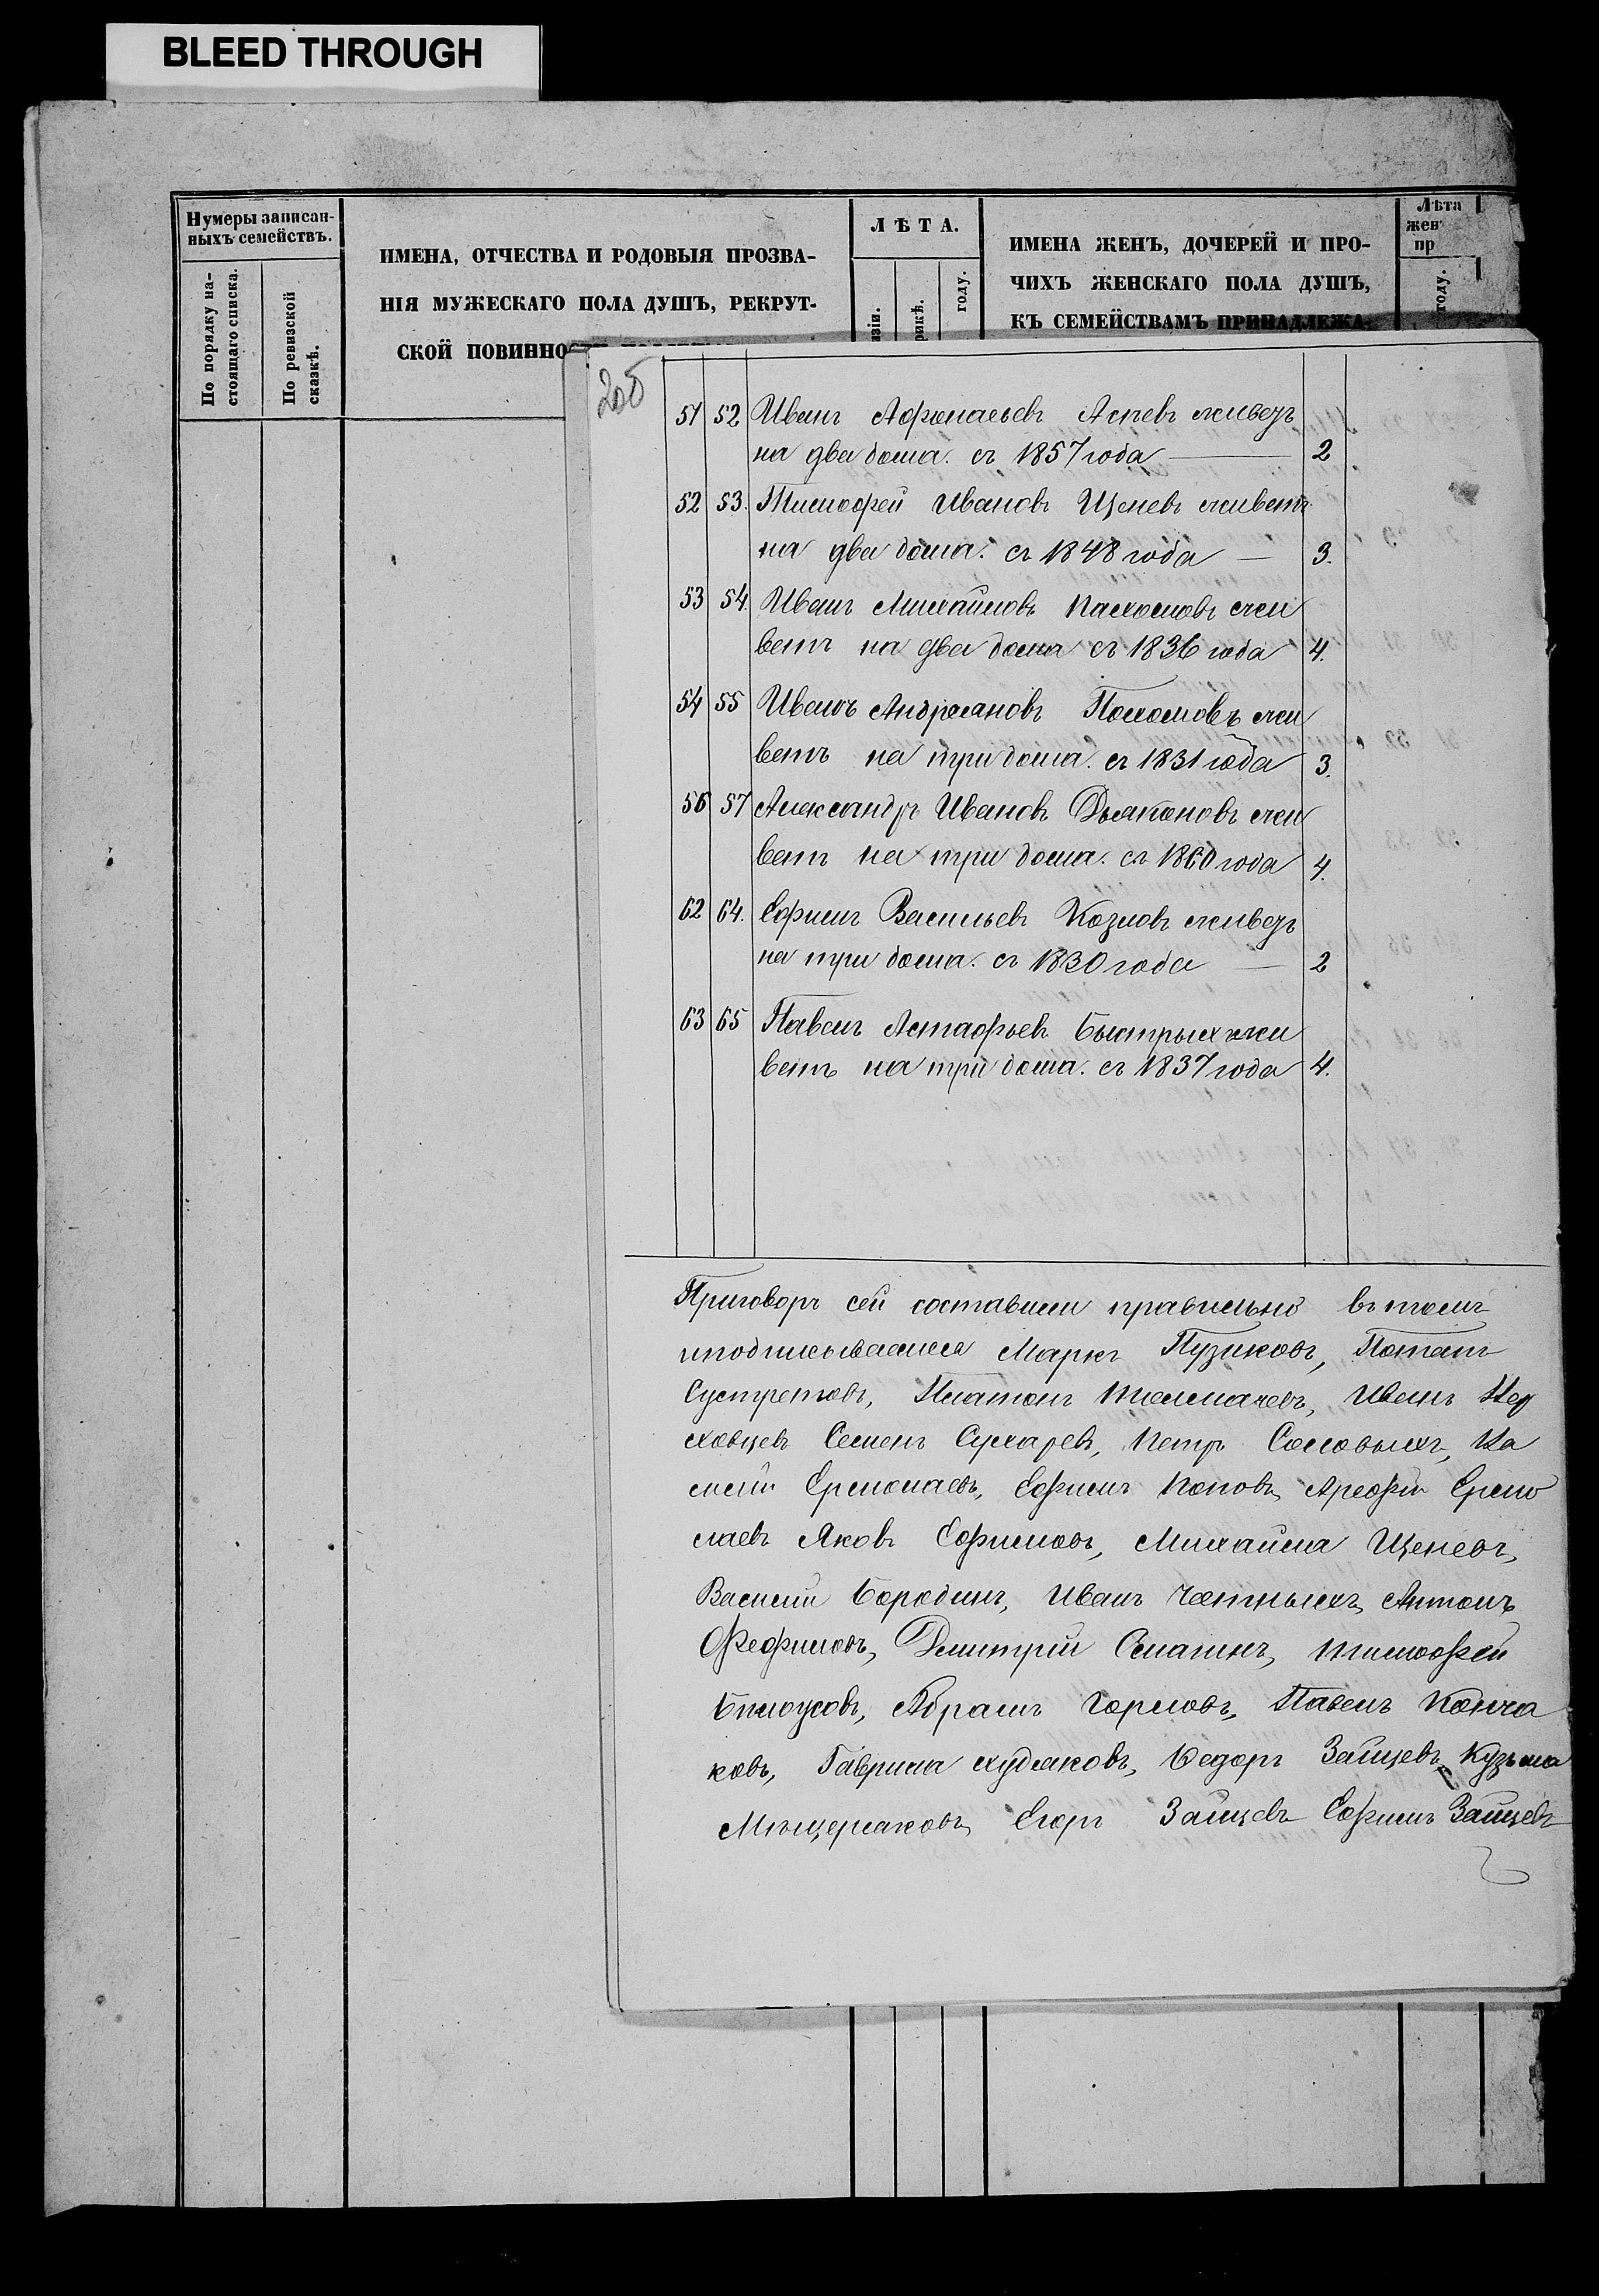 BLEED THROUGH
Нумеры записан-
ныхъ семействъ.
По порядку на-
стоящаго списка.
По ревизской
сказкѣ.
ИМЕНА, ОТЧЕСТВА И РОДОВЫЯ ПРОЗВА-
НІЯ МУЖЕСКАГО ПОЛА ДУШЪ, РЕКРУТ-
СКОЙ ПОВИННО
ЛѢТА.
году.
ИМЕНА ЖЕНЪ, ДОЧЕРЕЙ И ПРО-
ЧИХЪ ЖЕНСКАГО ПОЛА ДУШЪ,
КЪ СЕМЕЙСТВАМЪ ПРИНАДЛЕЖА-
Лѣта
жен
пр
году.
51 52 Иванъ Афонасьевъ живетъ
на два дома. съ 1857 года — 2
52 53. Тимофей Ивановъ Щеневъ живетъ
на два дома. съ 1848 года — 3.
53 54. Иванъ Михайловъ Пахомовъ жи
ветъ на два дома съ 1836 года 4.
54 55 Иванъ Андреановъ Пахомовъ жи
ветъ на три дома. съ 1831 года 3.
56 57 Александръ Ивановъ Дьяконовъ жи
ветъ на три дома. съ 1860 года 4.
62 64. Ефимъ Васильевъ Козловъ живетъ
на три дома. съ 1830 года — 2
63 65 Павелъ Астафьевъ Быстрыхъ жи
ветъ на три дома. съ 1837 года 4.
Приговоръ сей составили правильно въ томъ
иподписываемся Маркъ Пузиковъ, Потапъ
Сустретовъ, Платонъ Толмачевъ, Иванъ
Семенъ Сухаревъ, Петръ Соловыхъ,
Ермолаевъ, Ефимъ Поповъ, Арефій Ермо
лаевъ Яковъ Ефимовъ, Михайла Щеневъ,
Василій Бородинъ, Иванъ Антонъ
Фефиловъ, Дмитрій Тимофей
Билоусовъ, Абрамъ Горловъ, Павелъ Конча
ковъ, Гаврила Худяковъ, Федоръ Зайцевъ, Кузьма
Мещеряковъ, Егоръ Зайцевъ Ефимъ Зайцевъ